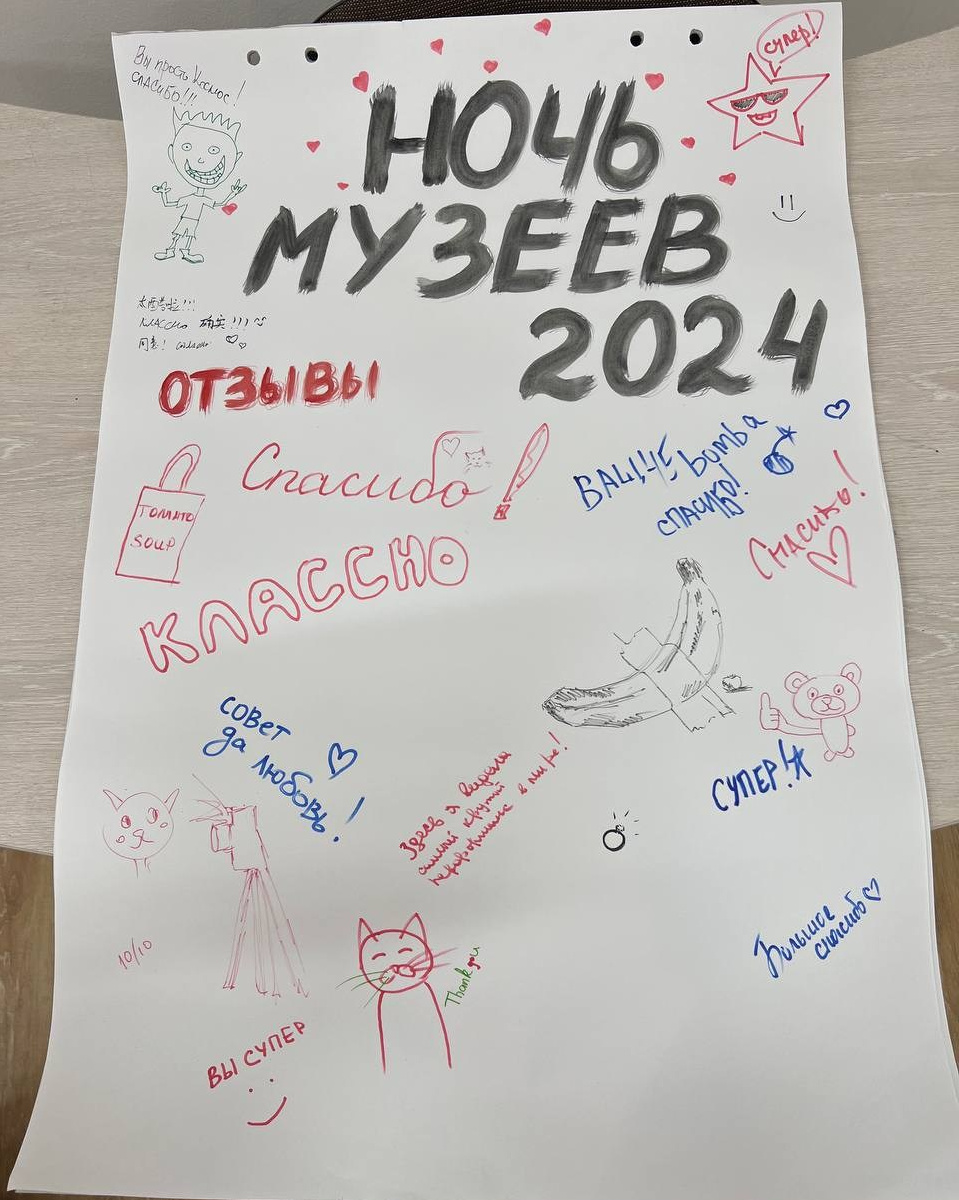 Вы просто космос!
СПАСИБО!!!
супер!
НОЧЬ
МУЗЕЕВ
2024
太酷啦!!!
КЛАССНО 确实!!!
同意!
ОТЗЫВЫ
Спасибо
ВАЩЩЕ bomba
СПАСИБО!
TOMATO
SOUP
Спасибо!
КЛАССНО
совет
да любовь!
Здесь я видела
самый крутой
перформанс в мире!
СУПЕР!
10/10
Thank you
Большое
спасибо
ВЫ СУПЕР